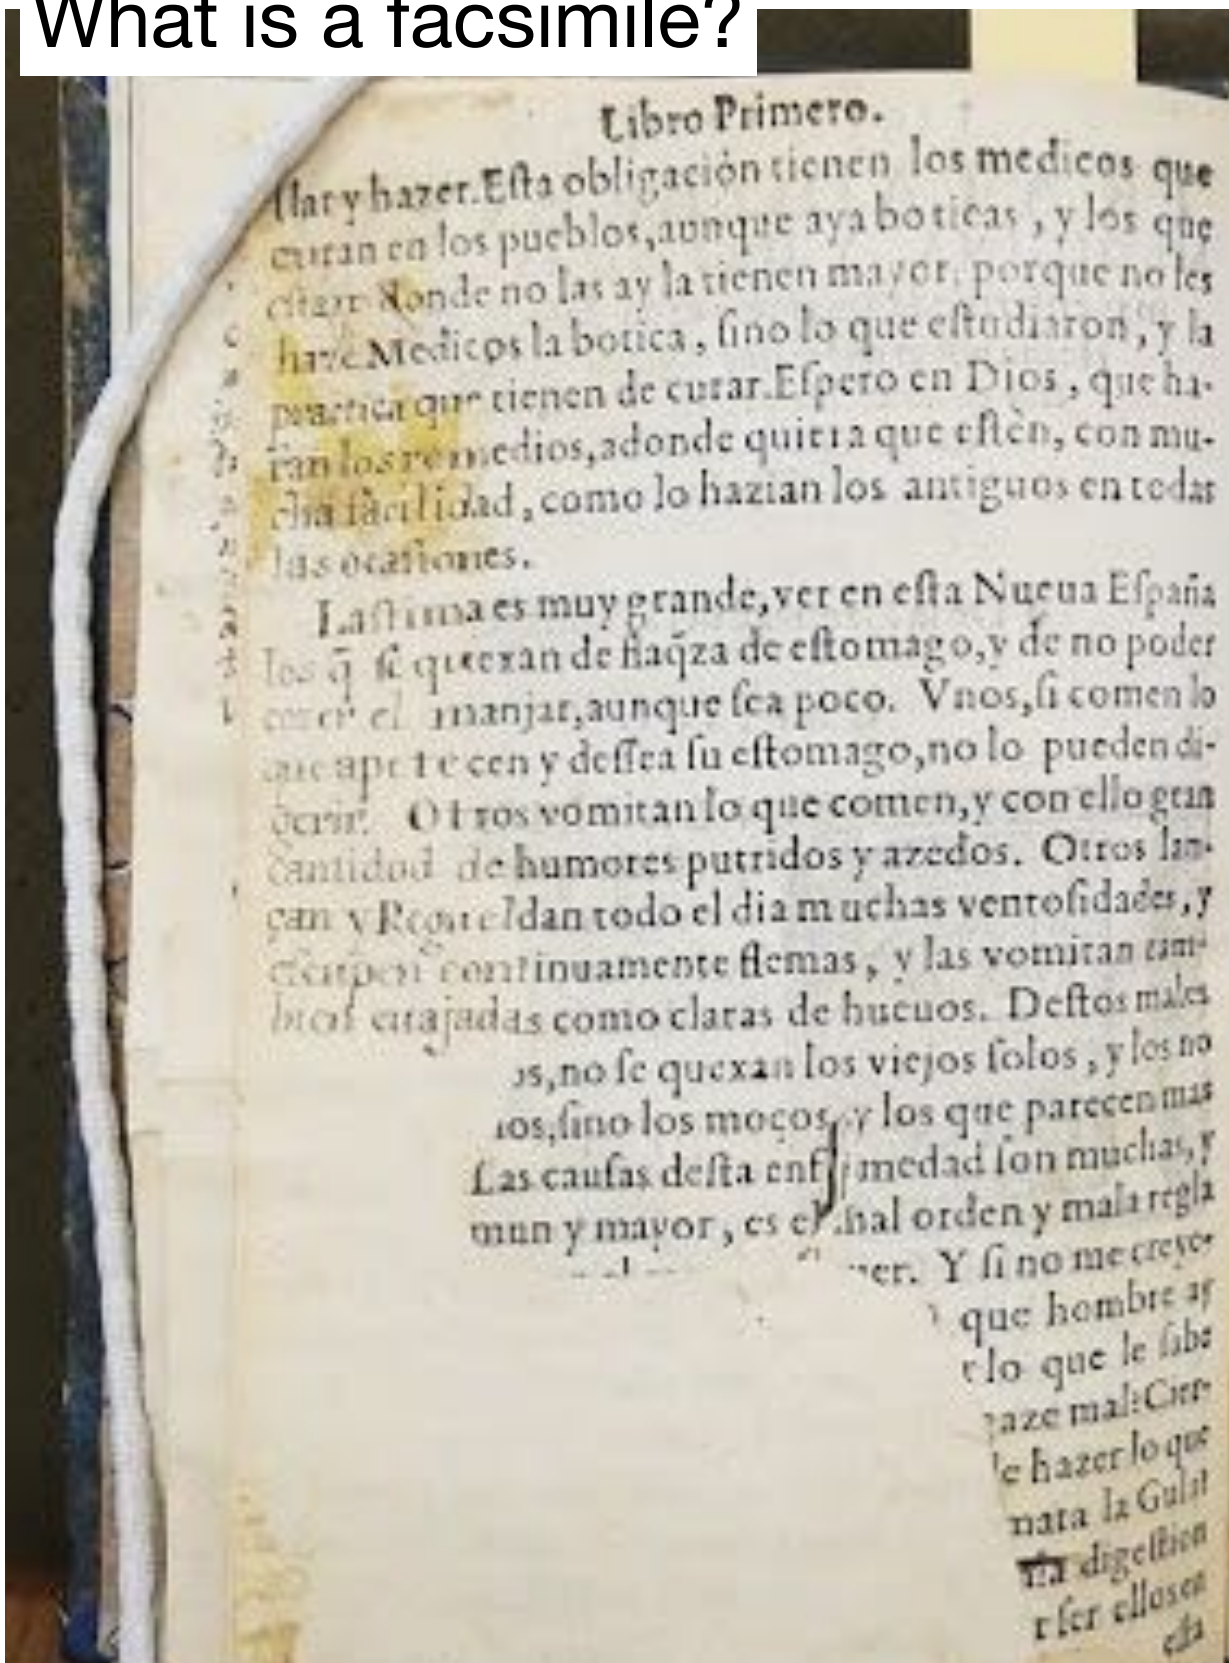 What is a facsimile?
Libro Primero.
ſlar y hazer. Eſta obligación tienen los medicos que
curan en los pueblos, aunque aya boticas, y los que
eſtan donde no las ay la tienen mayor, porque no les
haze Medicos la botica, ſino lo que eſtudiaron, y la
practica que tienen de curar. Eſpero en Dios, que ha-
ran los remedios, adonde quiera que eſtèn, con mu-
cha facilidad, como lo hazian los antiguos en todas
las ocaſiones.
Laſtima es muy grande, ver en eſta Nueua Eſpaña
los q̃ ſe quexan de flaq̃za de eſtomago, y de no poder
cozer el manjar, aunque ſea poco. Vnos, ſi comen lo
que apetecen y deſſea ſu eſtomago, no lo pueden di-
gerir. Otros vomitan lo que comen, y con ello gran
cantidad de humores putridos y azedos. Otros lan-
çan y Regueldan todo el dia muchas ventoſidades, y
eſcupen continuamente flemas, y las vomitan tam-
bien cuajadas como claras de hueuos. Deſtos males
os, no ſe quexan los viejos ſolos, y los no
ios, ſino los moços, y los que parecen mas
Las cauſas deſta enf medad ſon muchas, y
mun y mayor, es el mal orden y mala regla
er. Y ſi no me creye-
que hombre ay
lo que le ſabe
aze mal: Cier-
e hazer lo que
mata la Gula!
digeſtion
r ſer ellos en
eſta